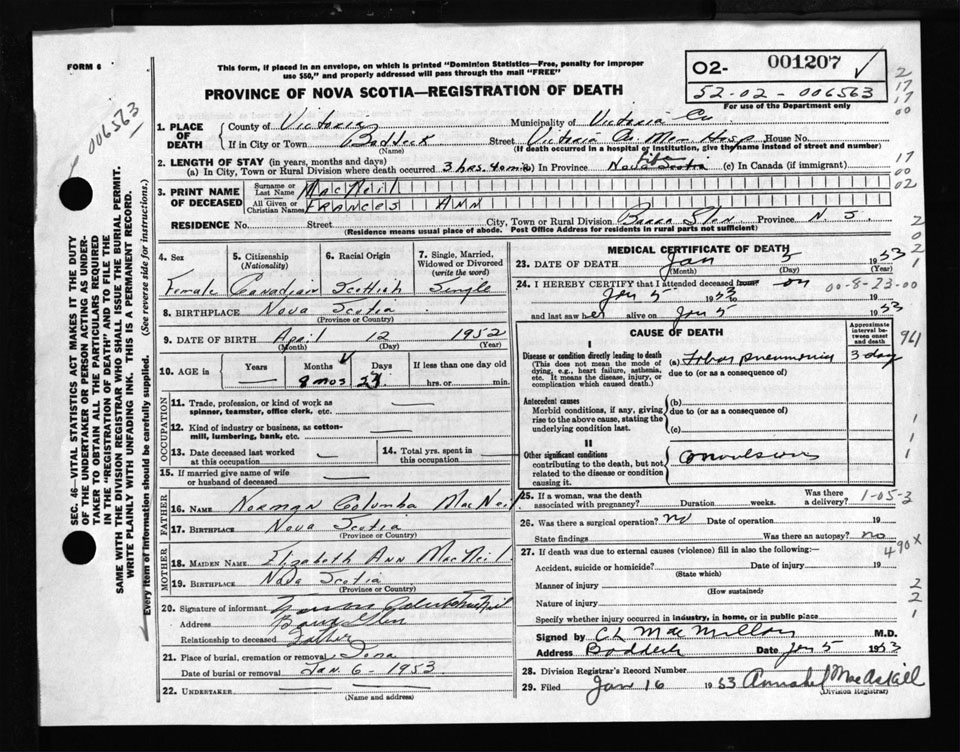 FORM 6
This form, if placed in an envelope, on which is printed "Dominion Statistics—Free, penalty for improper
use $50," and properly addressed will pass through the mail "FREE"
PROVINCE OF NOVA SCOTIA—REGISTRATION OF DEATH
02- 001207 ✓
52-02-006563
For use of the Department only
006563
1. PLACE OF DEATH
County of Victoria Municipality of Victoria Co
If in City or Town Baddeck Street Victoria Co. Mem Hosp House No.
(Name) (If death occurred in a hospital or institution, give thyname instead of street and number)
2. LENGTH OF STAY (in years, months and days)
(a) In City, Town or Rural Division where death occurred 3 hrs. 40 min (b) In Province Life Nova Scotia (c) In Canada (if immigrant)
3. PRINT NAME OF DECEASED
Surname or Last Name MacNeil
All Given or Christian Names FRANCES ANN
RESIDENCE No. Street City, Town or Rural Division Barra Glen Province N.S.
(Residence means usual place of abode. Post Office Address for residents in rural parts not sufficient)
4. Sex Female
5. Citizenship (Nationality) Canadian
6. Racial Origin Scottish
7. Single, Married, Widowed or Divorced (write the word) Single
8. BIRTHPLACE Nova Scotia
(Province or Country)
9. DATE OF BIRTH April 12 1952
(Month) (Day) (Year)
10. AGE in Years — Months 8 mos Days 23 If less than one day old
hrs. or min.
OCCUPATION
11. Trade, profession, or kind of work as
spinner, teamster, office clerk, etc. —
12. Kind of industry or business, as cotton-
mill, lumbering, bank, etc. —
13. Date deceased last worked
at this occupation —
14. Total yrs. spent in
this occupation —
15. If married give name of wife
or husband of deceased —
FATHER
16. NAME Norman Columba MacNeil
17. BIRTHPLACE Nova Scotia
(Province or Country)
MOTHER
18. MAIDEN NAME Elizabeth Ann MacNeil
19. BIRTHPLACE Nova Scotia
(Province or Country)
20. Signature of informant Norman Columba MacNeil
Address Barra Glen
Relationship to deceased Father
21. Place of burial, cremation or removal Iona
Date of burial or removal Jan. 6 - 1953
22. UNDERTAKER — —
(Name and address)
MEDICAL CERTIFICATE OF DEATH
23. DATE OF DEATH Jan 5 1953
(Month) (Day) (Year)
24. I HEREBY CERTIFY that I attended deceased from on
Jan 5 1953 to
and last saw her alive on Jan 5 1953
00-8-23-00
CAUSE OF DEATH
Approximate interval between onset and death
I
Disease or condition directly leading to death (a) Lobar pneumonia 3 day
(This does not mean the mode of
dying, e.g., heart failure, asthenia,
etc. It means the disease, injury, or
complication which caused death.)
due to (or as a consequence of)
Antecedent causes
Morbid conditions, if any, giving
rise to the above cause, stating the
underlying condition last.
(b)
due to (or as a consequence of)
(c)
II
Other significant conditions
contributing to the death, but not
related to the disease or condition
causing it.
Convulsions
25. If a woman, was the death
associated with pregnancy? Duration weeks. Was there
a delivery? 1-05-3
26. Was there a surgical operation? no Date of operation 19
State findings Was there an autopsy? no
490X
27. If death was due to external causes (violence) fill in also the following:—
Accident, suicide or homicide? Date of injury 19
(State which)
Manner of injury
(How sustained)
Nature of injury
Specify whether injury occurred in industry, in home, or in public place
Signed by C L MacMillan M.D.
Address Baddeck Date Jan 5 1953
28. Division Registrar's Record Number
29. Filed Jan 16 1953 Annabel MacAskill
(Division Registrar)
SEC. 46—VITAL STATISTICS ACT MAKES IT THE DUTY
OF THE UNDERTAKER OR PERSON ACTING AS UNDER-
TAKER TO OBTAIN ALL THE PARTICULARS REQUIRED
IN THE "REGISTRATION OF DEATH" AND TO FILE THE
SAME WITH THE DIVISION REGISTRAR WHO SHALL ISSUE THE BURIAL PERMIT.
WRITE PLAINLY WITH UNFADING INK. THIS IS A PERMANENT RECORD.
Every item of information should be carefully supplied. (See reverse side for instructions.)
2
17
17
00
17
00
02
2
0
2
1
941
1
1
1
2
2
1